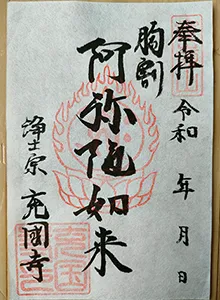 奉拝
令和 年 月 日
胸割
阿弥陀如来
浄土宗 充國寺